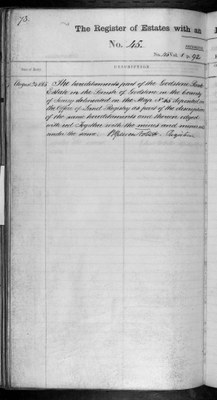 73.
The Register of Estates with an
No. 45.
DESCRIPTION.
The hereditaments part of the Godstone
Estate in the Parish of Godstone in the County
of Surrey delineated on the Map No. 45 deposited in
the Office of Land Registry as part of the description
of the same hereditaments and therein edged
with red Together with the mines and minerals
under the same.